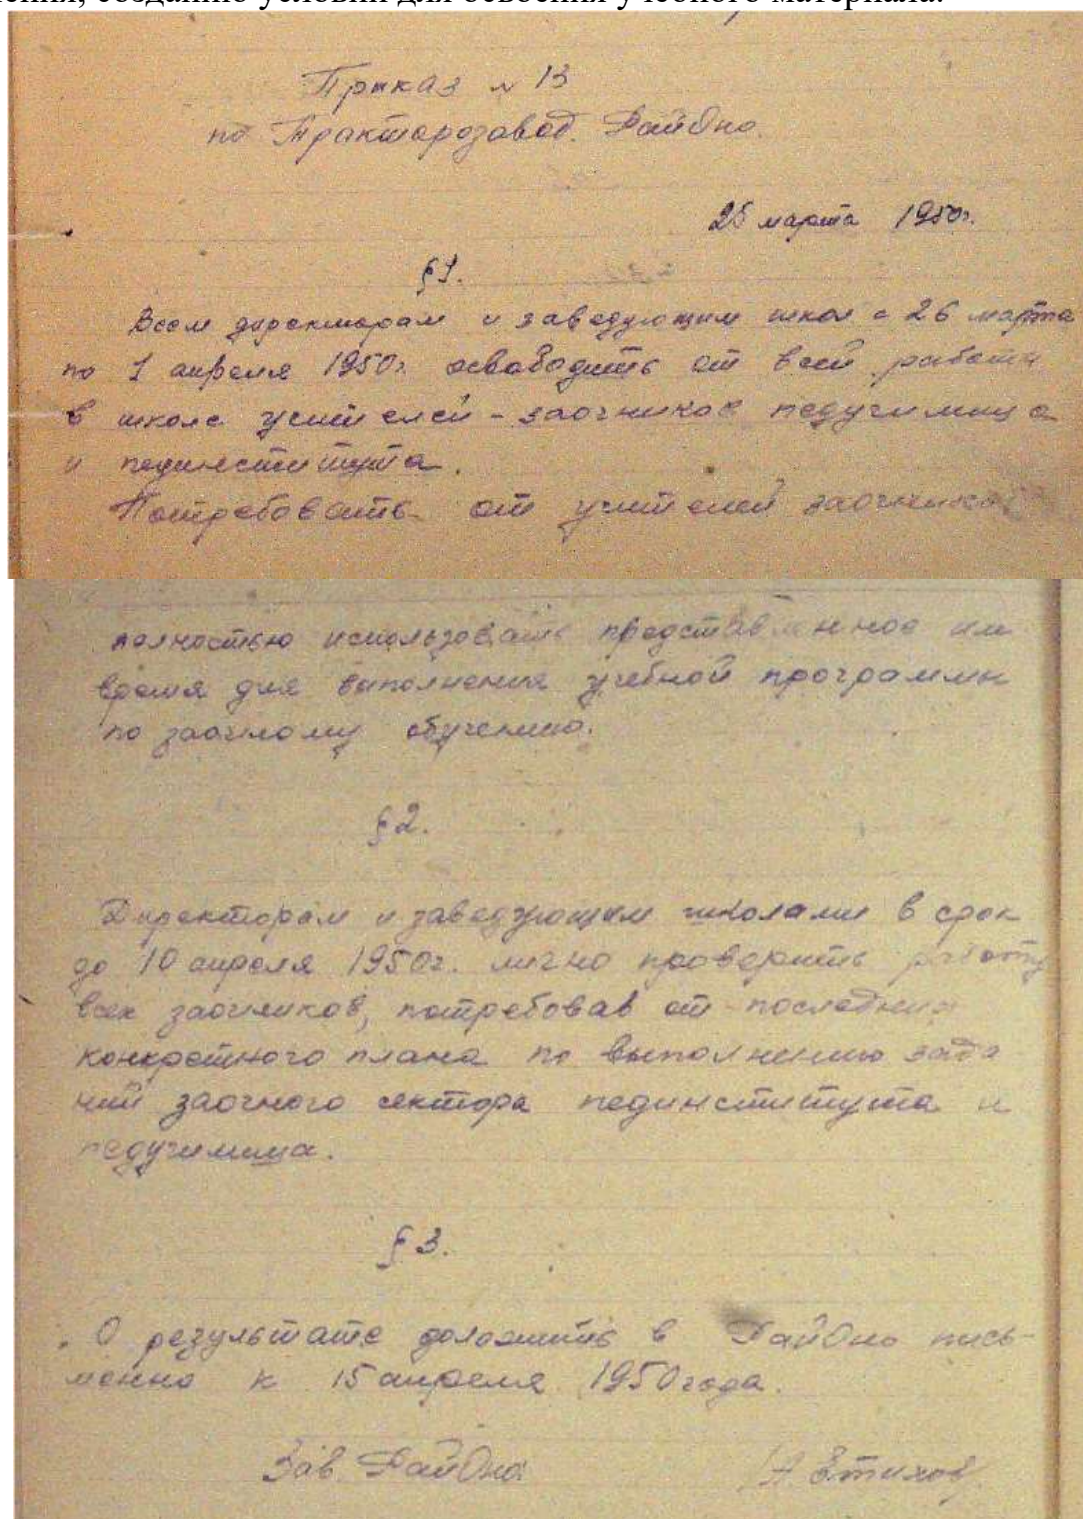 ения, созданию условий для освоения учебного материала.
Приказ № 13
по Тракторозавод. РайОно.
25 марта 1950г.
§1.
Всем директорам и заведующим школ с 26 марта
по 1 апреля 1950г. освободить от всей работы
в школе учителей-заочников педучилища
и пединститута.
Потребовать от учителей заочников
полностью использовать предоставленное им
время для выполнения учебной программы
по заочному обучению.
§2.
Директорам и заведующим школами в срок
до 10 апреля 1950г. лично проверить работу
всех заочников, потребовав от последних
конкретного плана по выполнению зада
ний заочного сектора пединститута и
педучилища.
§3.
О результате доложить в РайОно пись-
менно к 15 апреля 1950 года.
Зав. РайОно